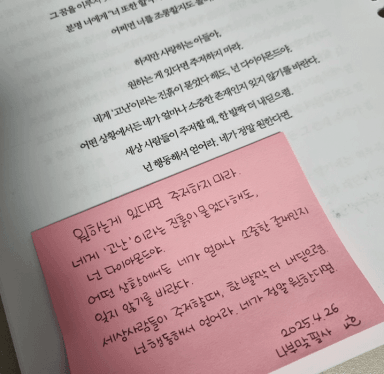 그 꿈을 이루
분명 나에게 "너 또한 할
어쩌면 너를 조롱할지도
하지만 사랑하는 아들아,
원하는 게 있다면 주저하지 마라.
네게 '고난'이라는 진흙이 묻었다 해도, 넌 다이아몬드야.
어떤 상황에서든 네가 얼마나 소중한 존재인지 잊지 않기를 바란다.
세상 사람들이 주저할 때, 한 발짝 더 내딛으렴.
넌 행동해서 얻어라. 네가 정말 원한다면.
원하는게 있다면 주저하지 마라.
네게 '고난'이라는 진흙이 묻었다 해도,
넌 다이아몬드야.
어떤 상황에서든 네가 얼마나 소중한 존재인지
잊지 않기를 바란다.
세상사람들이 주저할때, 한 발짝 더 내딛으렴.
넌 행동해서 얻어라. 네가 정말 원한다면.
2025.4.26
나부맞 필사